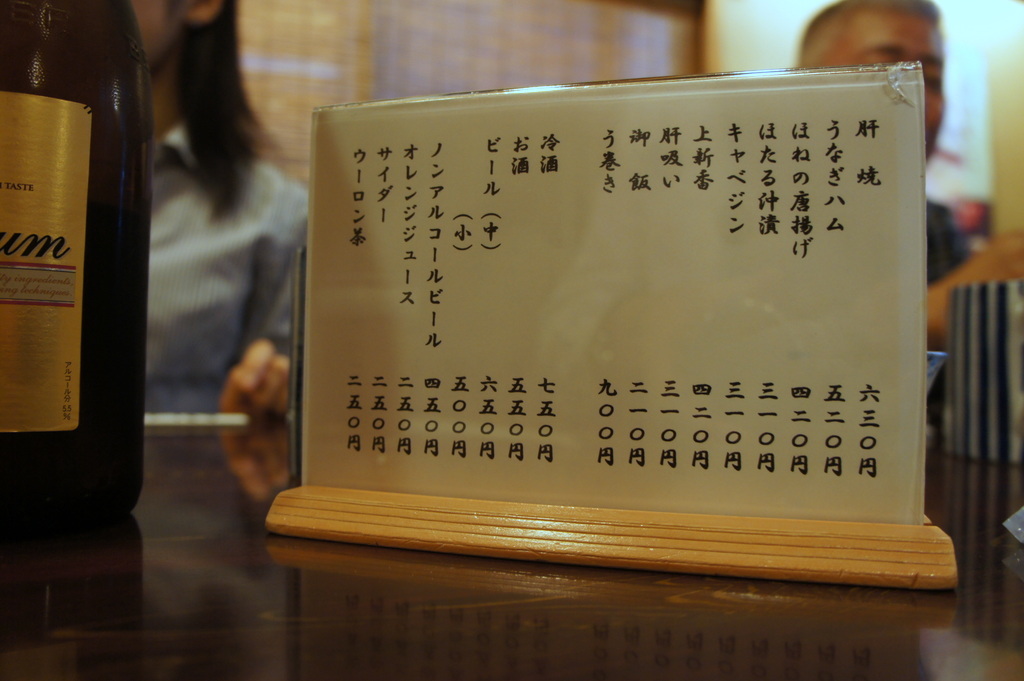 肝焼 六三〇円
うなぎハム 五二〇円
ほねの唐揚げ 四二〇円
ほたる沖漬 三一〇円
キャベジン 三一〇円
上新香 四二〇円
肝吸い 三一〇円
御飯 二一〇円
う巻き 九〇〇円
冷酒 七五〇円
お酒 五五〇円
ビール(中) 六五〇円
(小) 五〇〇円
ノンアルコールビール 四五〇円
オレンジジュース 二五〇円
サイダー 二五〇円
ウーロン茶 二五〇円
TASTE
um
ty ingredients,
ing techniques.
アルコール分 5.5%